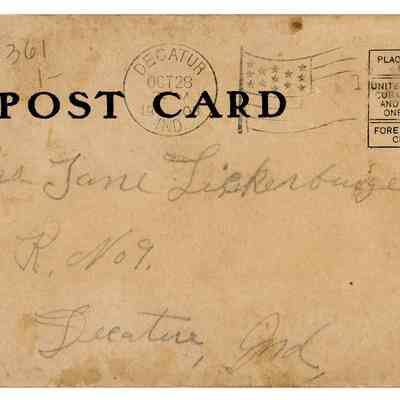 361
1-
DECATUR
OCT 28
IND.
POST CARD
PLAC
UNITE
CUBA
AND
ONE
FORE
C
ss Jane Lickenburge
R. No 9.
Decatur, Ind,